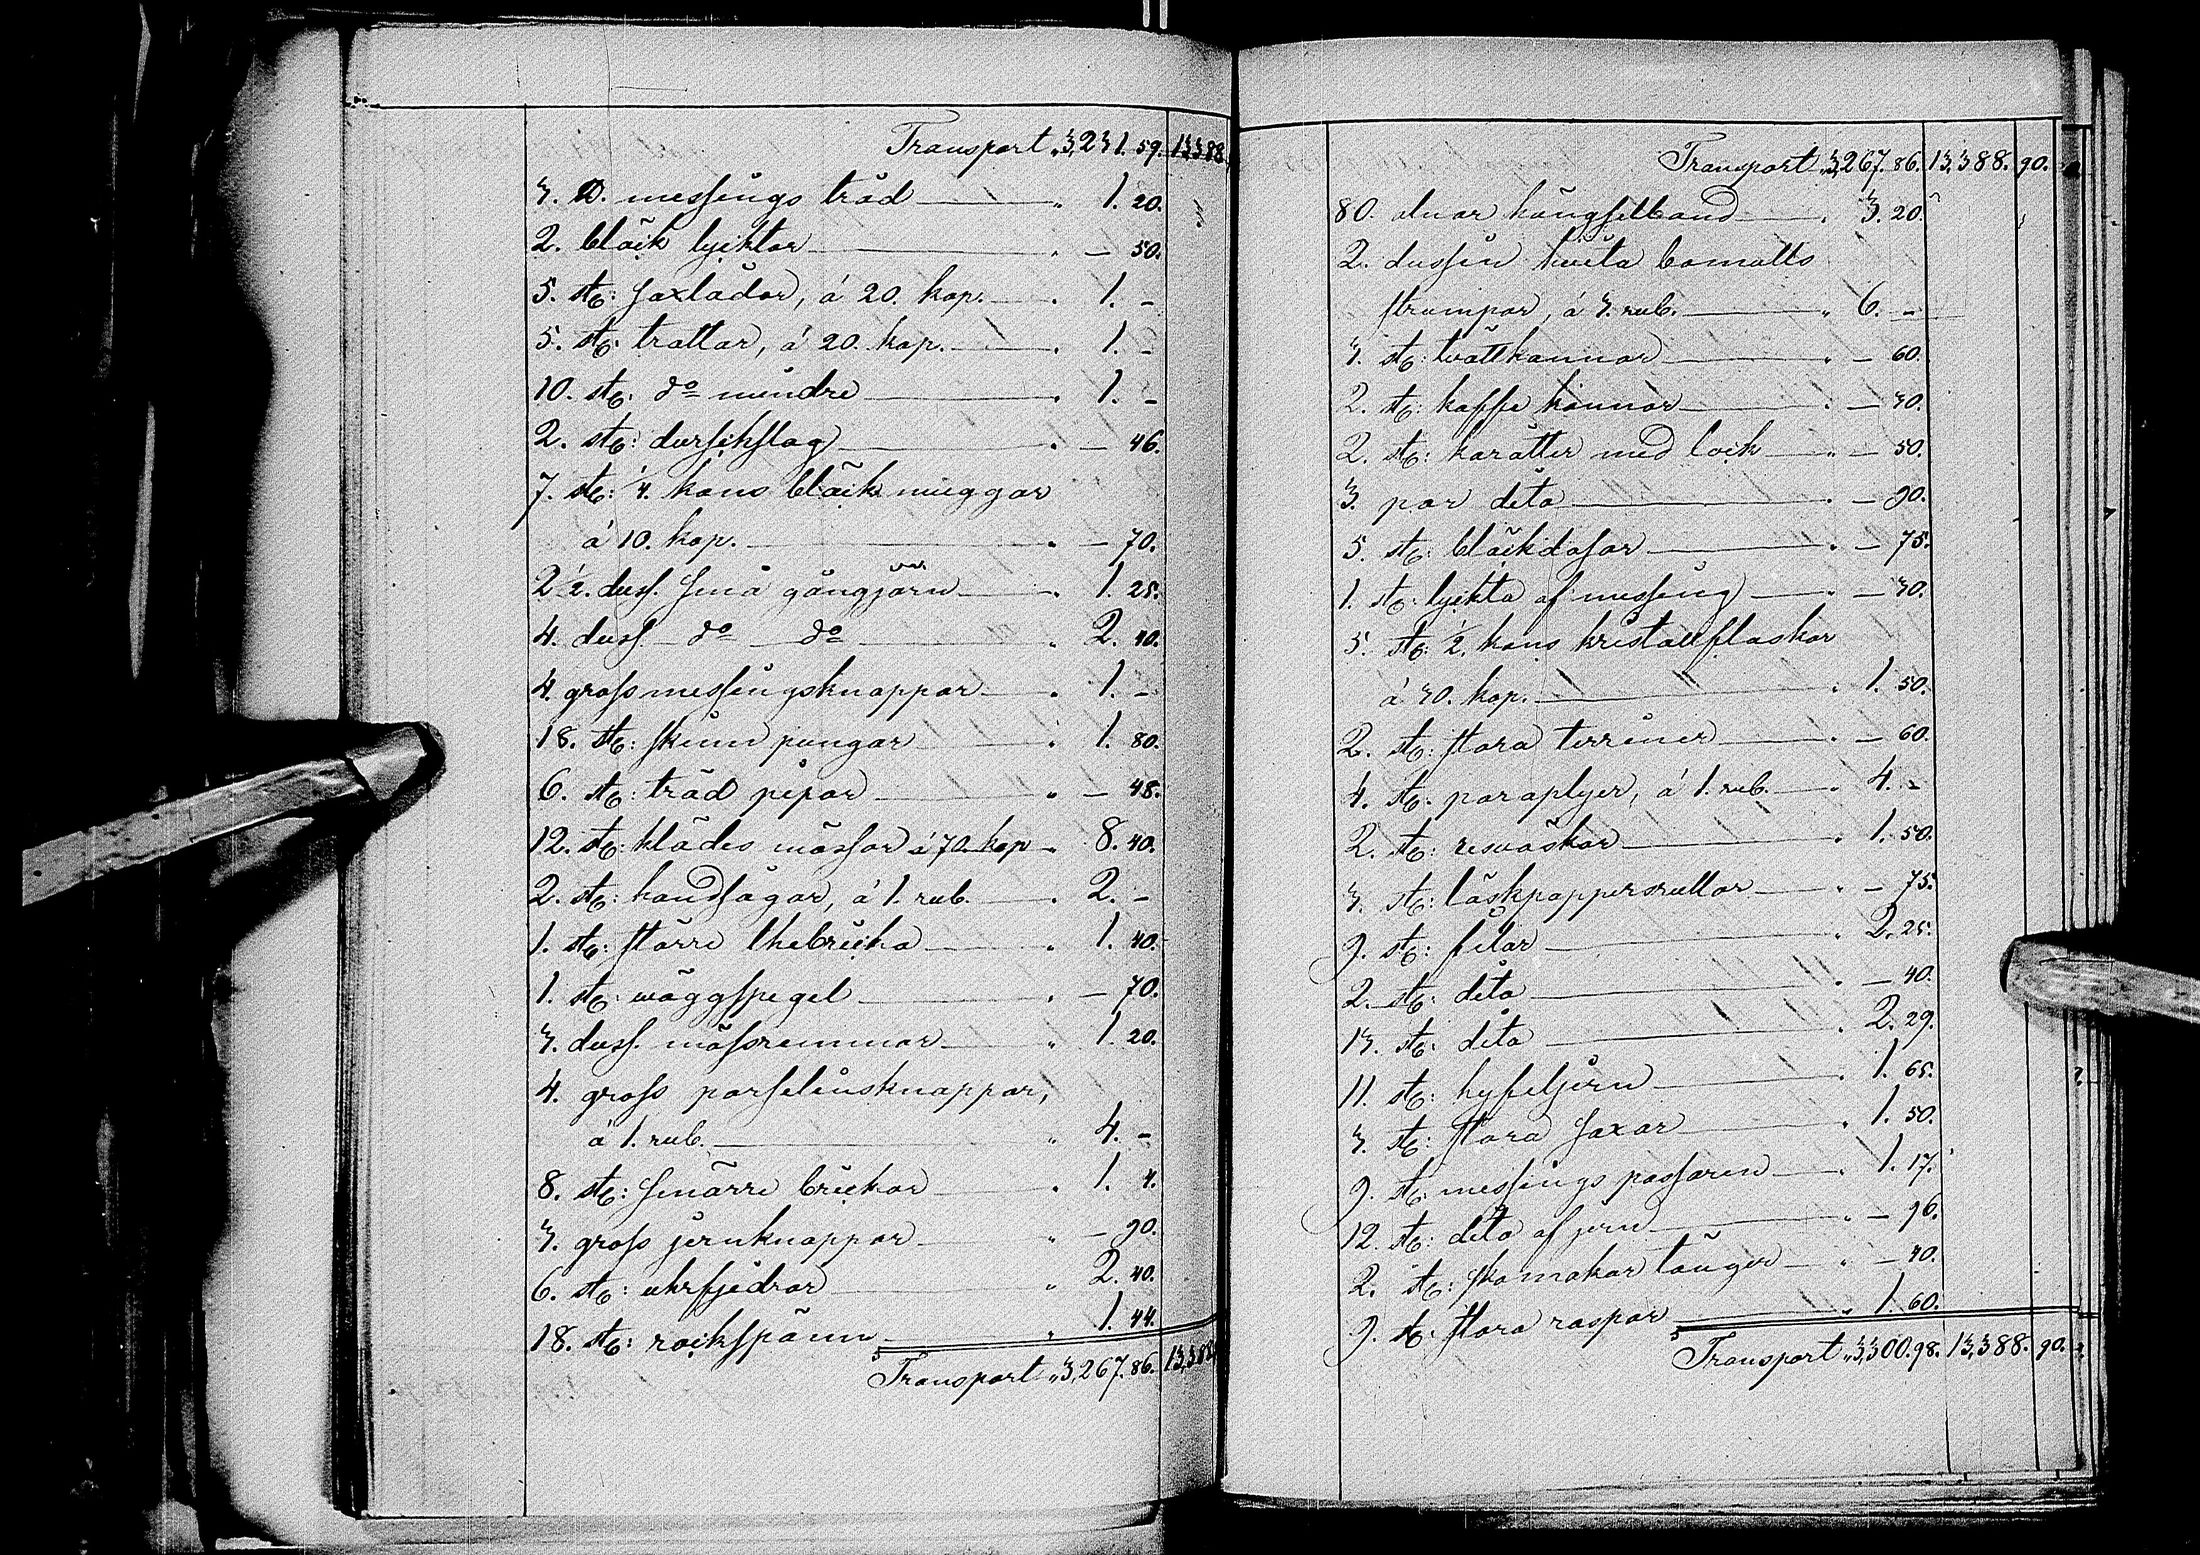 Transport „ 3,231. 59. 13,388
3. ℔. messings tråd „ 1. 20.
2. bläck lycktor „ — 50.
5. st: saxlådor, á 20. kop. „ 1. –
5. st: trattar, á 20. kop. „ 1. –
10. st: d:o mindre „ 1. –
2. st: durschslag „ — 46.
7. st: 1/4. kans bläck muggar
á 10. kop. „ — 70.
2 1/2. duss. små gångjärn „ 1. 25.
4. duss. d:o d:o „ 2. 40.
4. gross messingsknappar „ 1. –
18. st: skinn pungar „ 1. 80.
6. st: träd pipor „ — 48.
12. st: klädes mössor á 70. kop „ 8. 40.
2. st: handsågar, á 1. rub. „ 2. –
1. st: större thebricka „ 1. 40.
1. st: wäggspegel „ — 70.
3. duss. mössremmar „ 1. 20.
4. gross porselinsknappar,
á 1. rub. „ 4. –
8. st: smärre brickor „ 1. 4.
3. gross jernknappar „ — 90.
6. st: uhrfjedrar „ 2. 40.
18. st: rockspänn „ 1. 44.
Transport „ 3,267. 86. 13,388
Transport „ 3,267. 86. 13,388. 90.
80. alnar kängselband „ 3. 20.
2. dussin hwita bomulls
strumpor, á 3. rub. „ 6. –
3. st: twättkannor „ — 60.
2. st: kaffe kannor „ — 30.
2. st: karotter med lock „ — 50.
3. par dito „ — 90.
5. st: bläckdosor „ — 75.
1. st: lyckta af messing „ — 30.
5. st: 1/2. kans kristallflaskor
á 30. kop. „ 1. 50.
2. st: stora terriner „ — 60.
4. st: paraplyer, á 1. rub. „ 4. –
2. st: reswäskor „ 1. 50.
3. st: läskpappersrullor „ — 75.
9. st: filar „ 2. 25.
2. st: dito „ — 40.
13. st: dito „ 2. 29.
11. st: hyfeljern „ 1. 65.
3. st: stora saxar „ 1. 50.
9. st: messings passaren „ 1. 17.
12. st: dito af jern „ — 96.
2. st: skomakar tänger „ — 40.
9. st: stora raspar „ 1. 60.
Transport „ 3,300. 98. 13,388. 90.